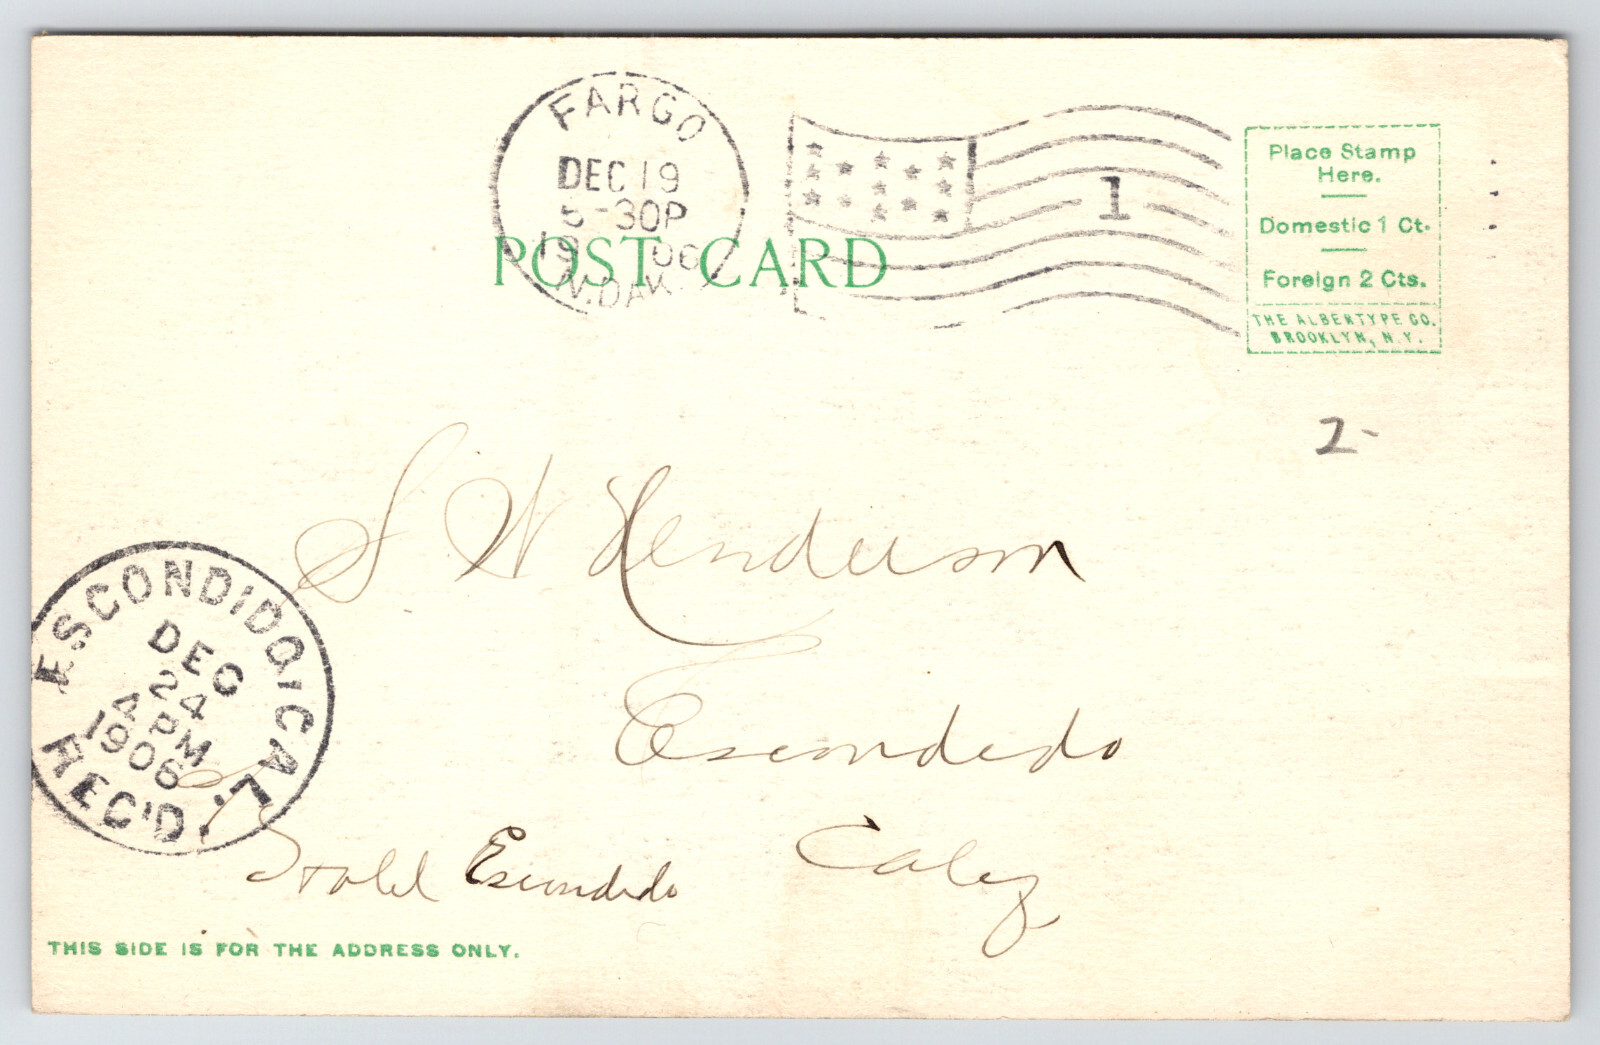 FARGO
DEC 19
5-30P
1906
N.DAK.
1
POST CARD
Place Stamp
Here.
Domestic 1 Ct.
Foreign 2 Cts.
THE ALBERTYPE CO.
BROOKLYN, N.Y.
2-
S. W Henderson
Escondido
Calif
Hotel Escondido
ESCONDIDO, CAL.
DEC
24
4 PM
1906
REC'D.
THIS SIDE IS FOR THE ADDRESS ONLY.